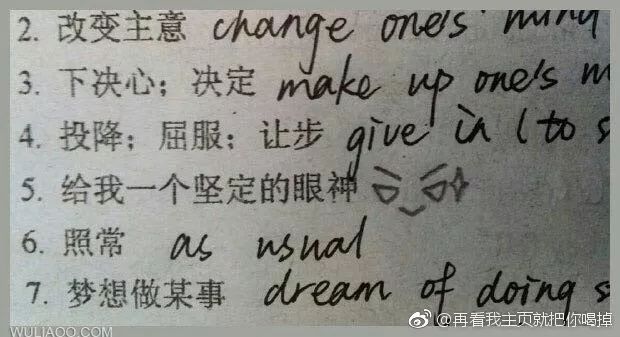 2. 改变主意 change one's mind
3. 下决心；决定 make up one's m
4. 投降；屈服；让步 give in (to s
5. 给我一个坚定的眼神
6. 照常 as usual
7. 梦想做某事 dream of doing s
WULIAOO.COM @再看我主页就把你喝掉